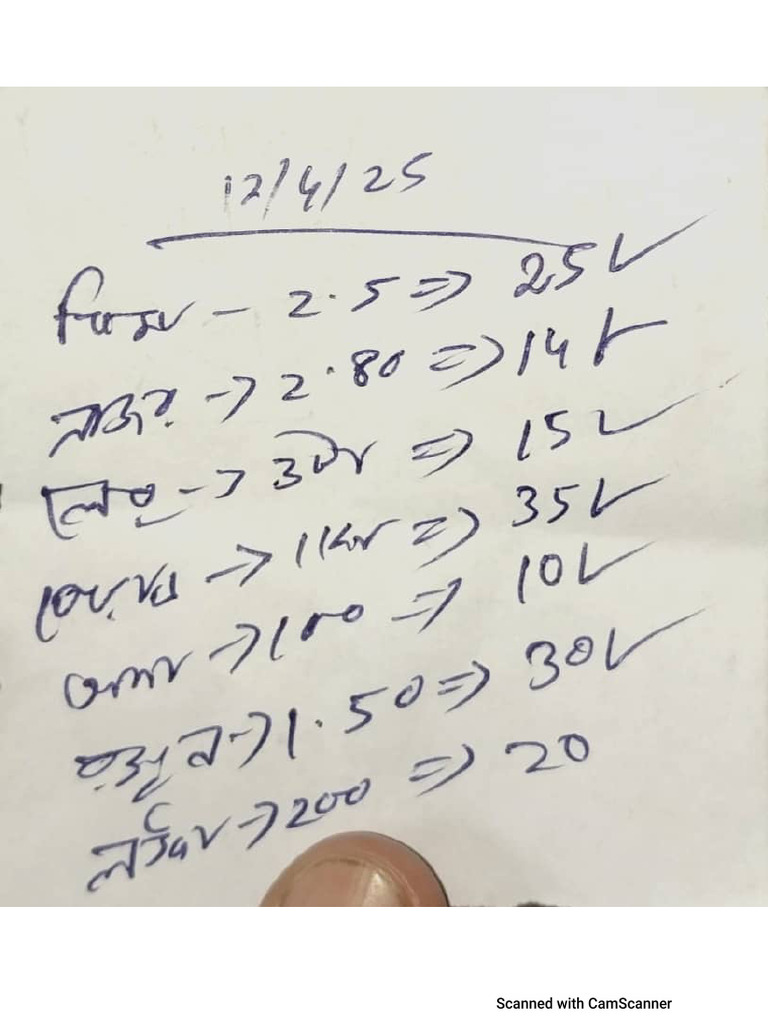 12/4/25
- 2.5 => 25 ✓
গাজর -> 2.80 => 14 ✓
লেবু -> 3টা => 15 ✓
-> 1 => 35 ✓
আদা -> 100 => 10 ✓
-> 1.50 => 30 ✓
লংকা -> 200 => 20
Scanned with CamScanner